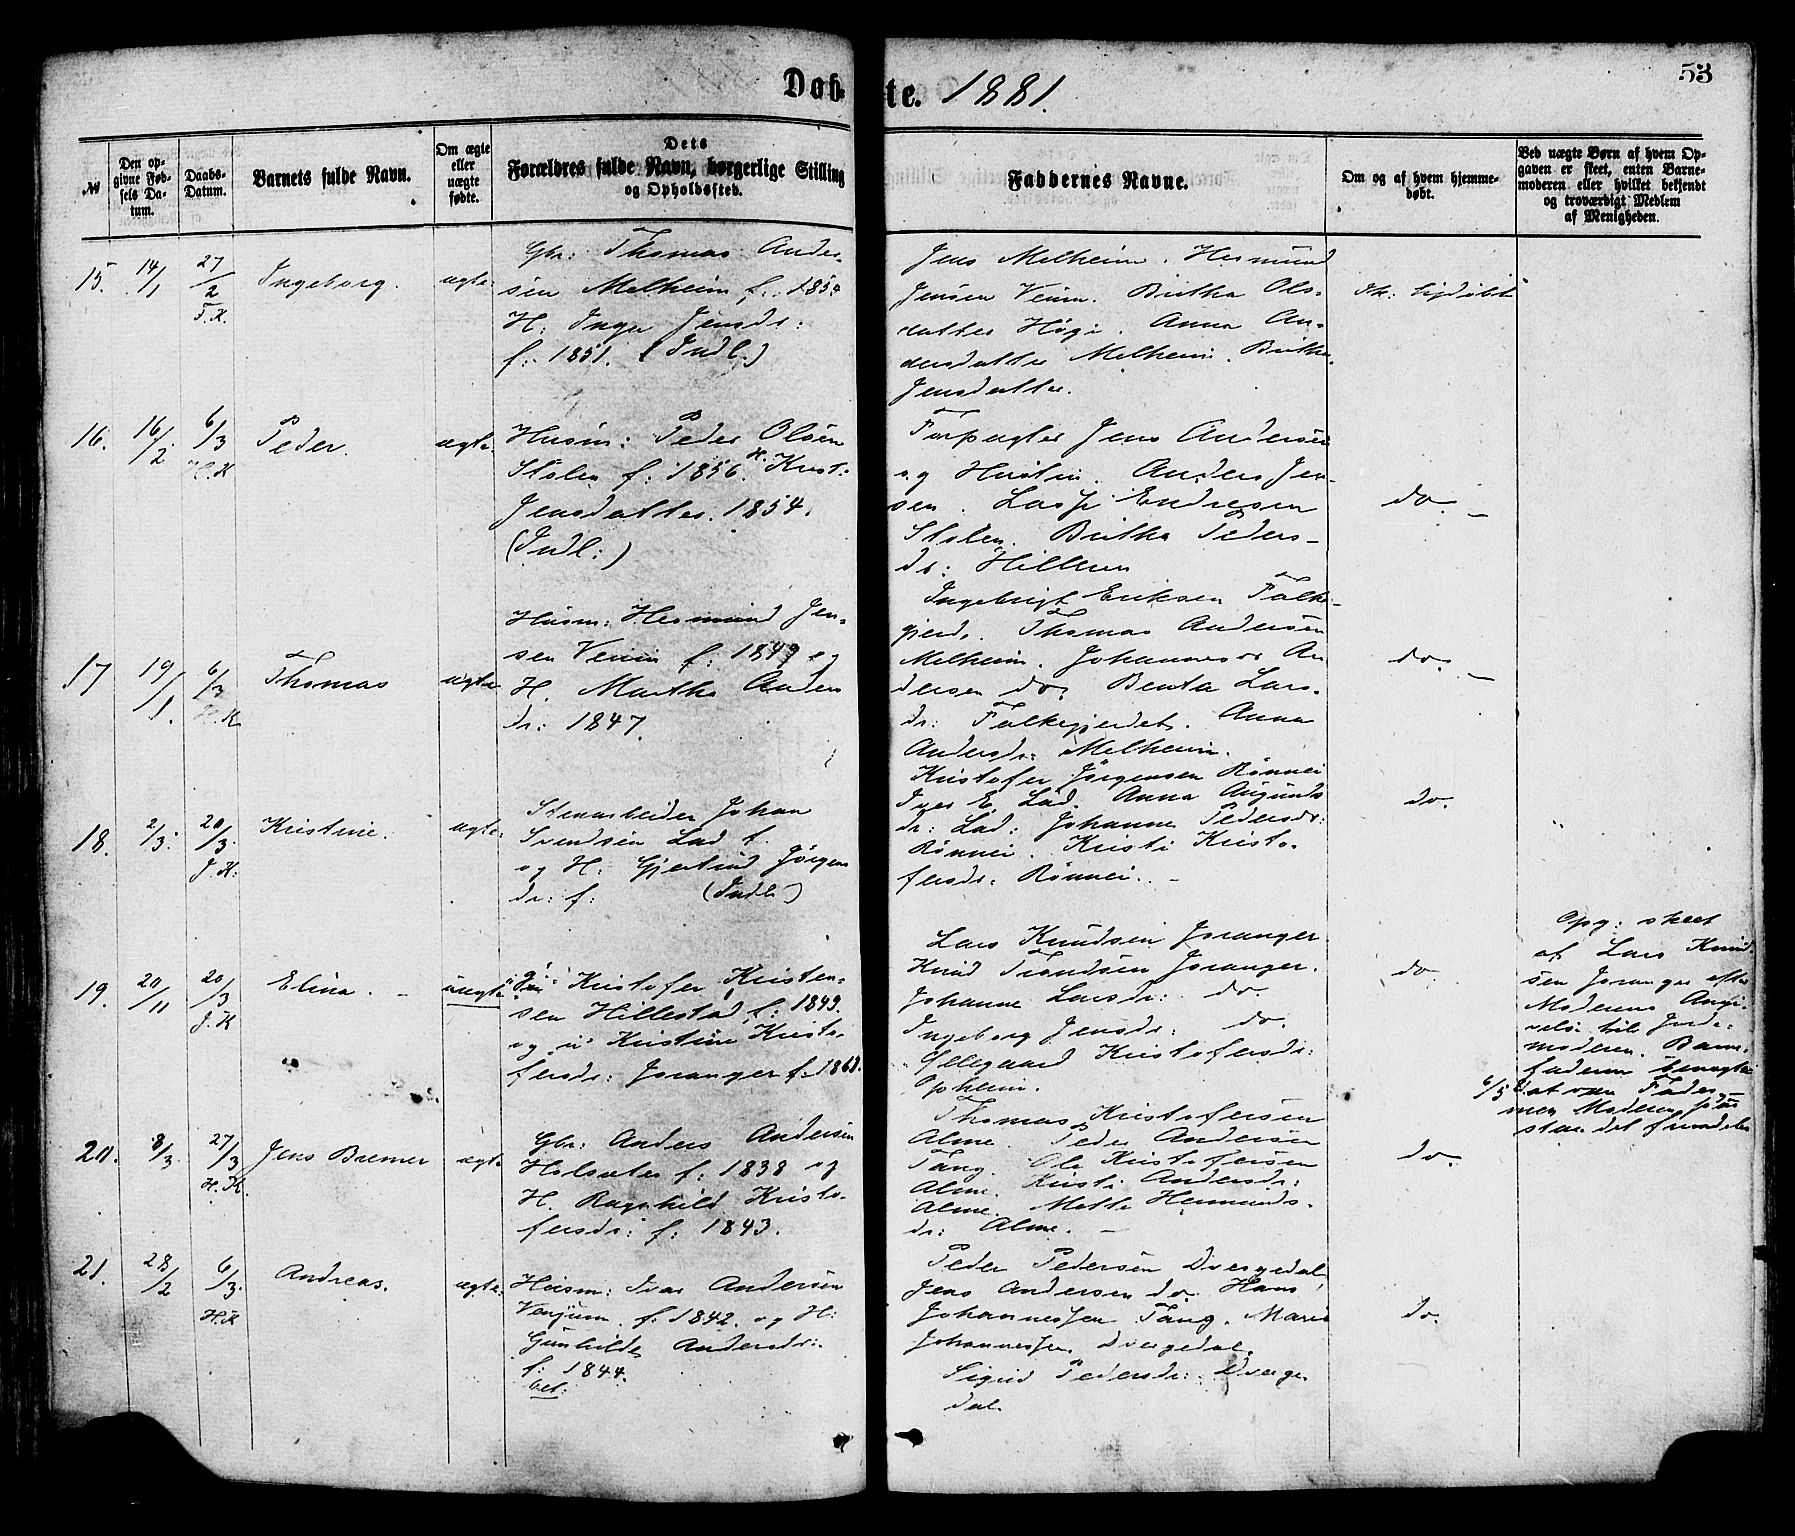 Døb
te. 1881.
53
№
Den op-
givne Fød-
sels Da-
tum.
Daabs-
Datum.
Barnets fulde Navn.
Om ægte
eller
uægte
fødte.
Dets
Forældres fulde Navn, borgerlige Stilling
og Opholdssted.
Faddernes Navne.
Om og af hvem hjemme-
døbt.
Ved uægte Børn af hvem Op-
gaven er skeet, enten Barne-
moderen eller hvilket bekjendt
og troværdigt Medlem
af Menigheden.
15. 14/1 27/2 Ingeborg. ægte.
Gbr: Thomas Ander-
sen Melheim f: 1854
H: Inger Jensdr:
f: 1851. (Indl.)
Jens Melheim. Hermund
Jensen Veum. Britha Ols-
datter Høgi. Anna An-
dersdatter Melheim. Britha
Jensdatter.
16. 16/2 6/3 H.K Peder. ægte.
Husm: Peder Olsen
Stolen f: 1856. H. Krist.
Jensdatter. 1854.
(Indl:)
Forpagter Jens Andersen
og Hustru. Anders Jen-
sen. Lasse Endresen
Stolen. Britha Peders-
dr: Hilleren
do. -
17 19/1. 6/3 H.K Thomas ægte
Husm: Hermund Jen-
sen Veum f: 1849 og
H. Martha Anders
dr: 1847.
Ingebrigt Eriksen Falke-
gjerd. Thomas Andersen
Melheim. Johannes An
dersen do. Benta Lars-
dr: Falkegjerdet. Anna
Andersdr: Melheim.
do. -
18. 2/3. 20/3. J.K: Kristine. ægte.
Stenarbeider Johan
Svendsen Lad f.
og H: Gjertrud Jørgens
dr: f: (Indl:)
Kristofer Jørgensen Rønnei
Iver E. Lad. Anna Augunds
dr: Lad: Johanne Pedersdr:
Rønnei. Kristi Kristo-
fersdr: Rønnei. -
do.
19. 20/11 20/3 J.K Elina. - uægte
Kristofer Kristen-
sen Hillestad f: 1849.
og Kristine Kristo-
fersdr: Joranger f: 1861.
Lars Knudsen Joranger
Knud Trondsen Joranger.
Johanne Larsdr: do.
Ingeborg Jensdr: do.
Øllegaard Kristofersdr:
Opheim.
do
Opg: skeet
af Lars Knud-
sen Joranger efter
Moderens Angi-
velse til Jorde-
moderen. Barne-
faderen benægter
6/5 at være Fader,
men Moderen paa-
staar det fremdeles
20. 8/3. 27/3 H.K. Jens Bremer ægte
Gbr: Anders Andersen
Holsæter f: 1838 og
H. Ragnhild Kristo-
fersdr: f: 1843.
Thomas Kristofersen
Alme. Peder Andersen
Tang. Ole Kristofersen
Alme. Kristi Andersdr:
Alme. Mette Hermunds-
dr: Alme. -
do.
21. 28/2 6/3. H.K Andreas. ægte.
Husm: Ivar Andersen
Venjum. f: 1842. og H:
Gunhilde Andersdr:
f: 1844.
Peder Pedersen Dvergedal
Jens Andersen do Hans
Johannessen Tang. Marie
Johannessen Dvergedal.
Sigrid Pedersdr: Dverge
dal.
do.